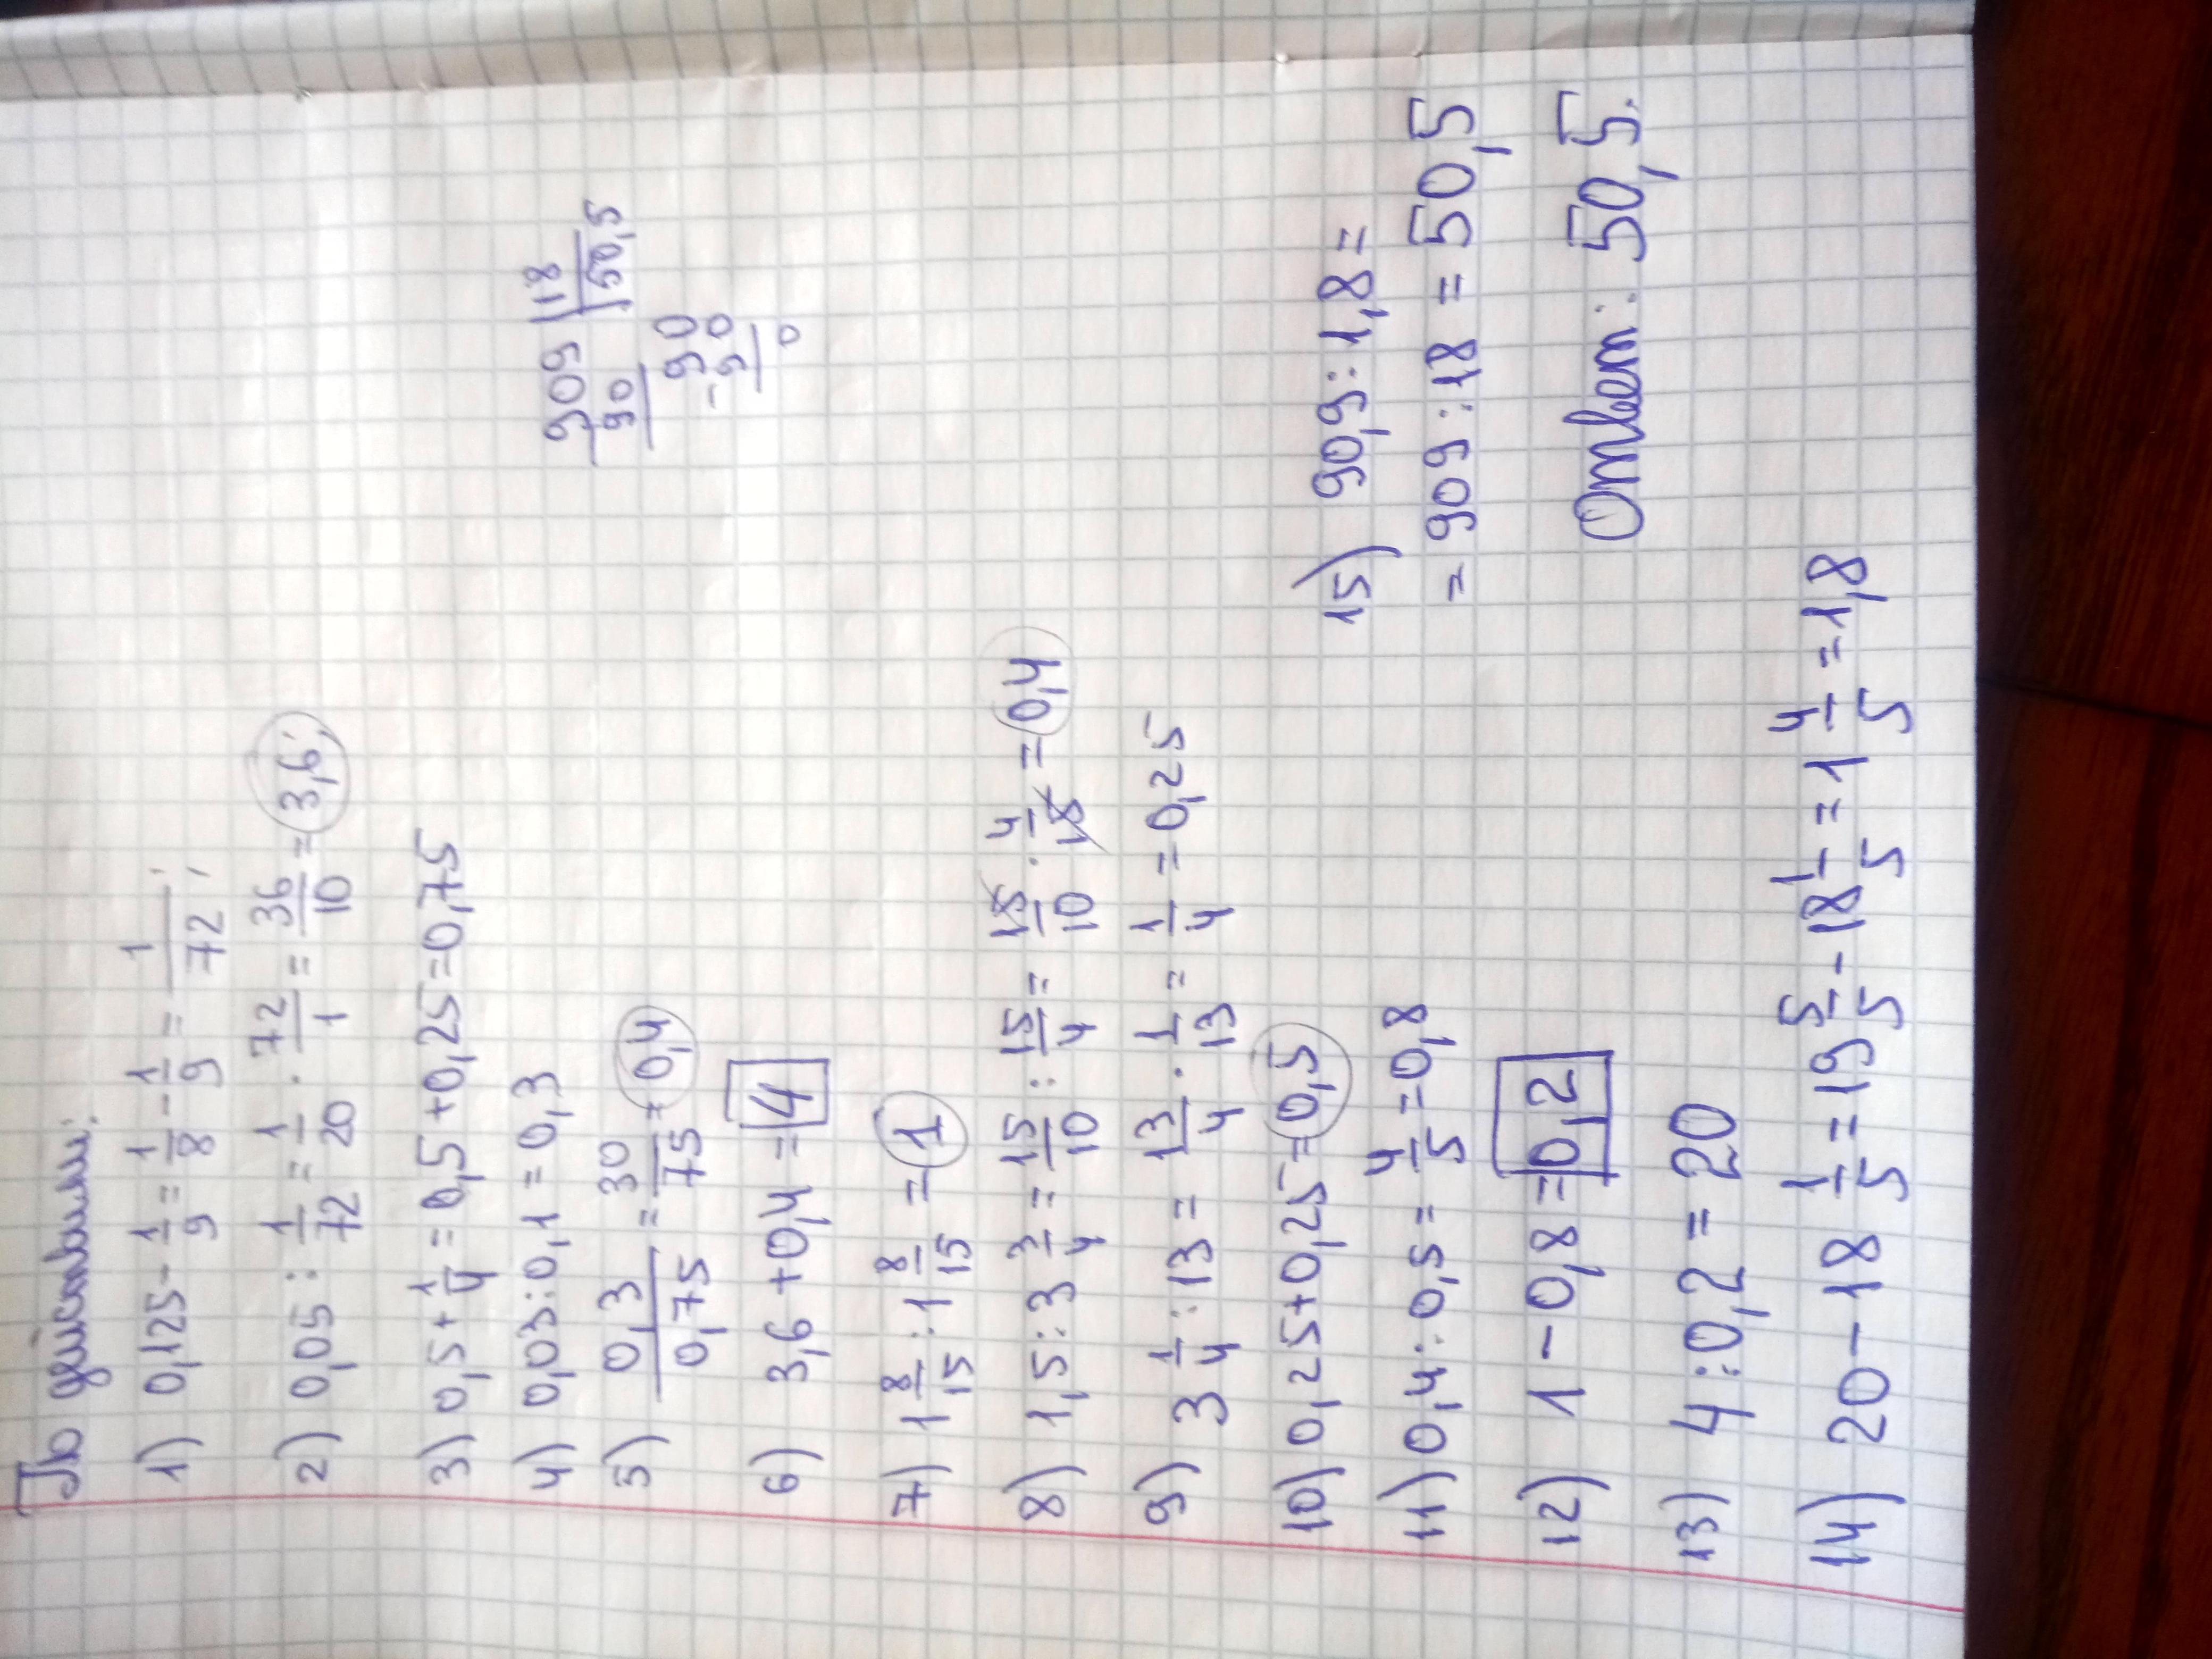 По действиям:
1) 0,125 - 1/9 = 1/8 - 1/9 = 1/72;
2) 0,05 : 1/72 = 1/20 · 72/1 = 36/10 = 3,6;
3) 0,5 + 1/4 = 0,5 + 0,25 = 0,75
4) 0,03 : 0,1 = 0,3
5) 0,3/0,75 = 30/75 = 0,4
6) 3,6 + 0,4 = 4
7) 1 8/15 : 1 8/15 = 1
8) 1,5 : 3 3/4 = 15/10 : 15/4 = 15/10 · 4/15 = 0,4
9) 3 1/4 : 13 = 13/4 · 1/13 = 1/4 = 0,25
10) 0,25 + 0,25 = 0,5
11) 0,4 : 0,5 = 4/5 = 0,8
12) 1 - 0,8 = 0,2
13) 4 : 0,2 = 20
14) 20 - 18 1/5 = 19 5/5 - 18 1/5 = 1 4/5 = 1,8
909 | 18
90 | 50,5
90
- 90
0
15) 90,9 : 1,8 =
= 909 : 18 = 50,5
Ответ: 50,5.